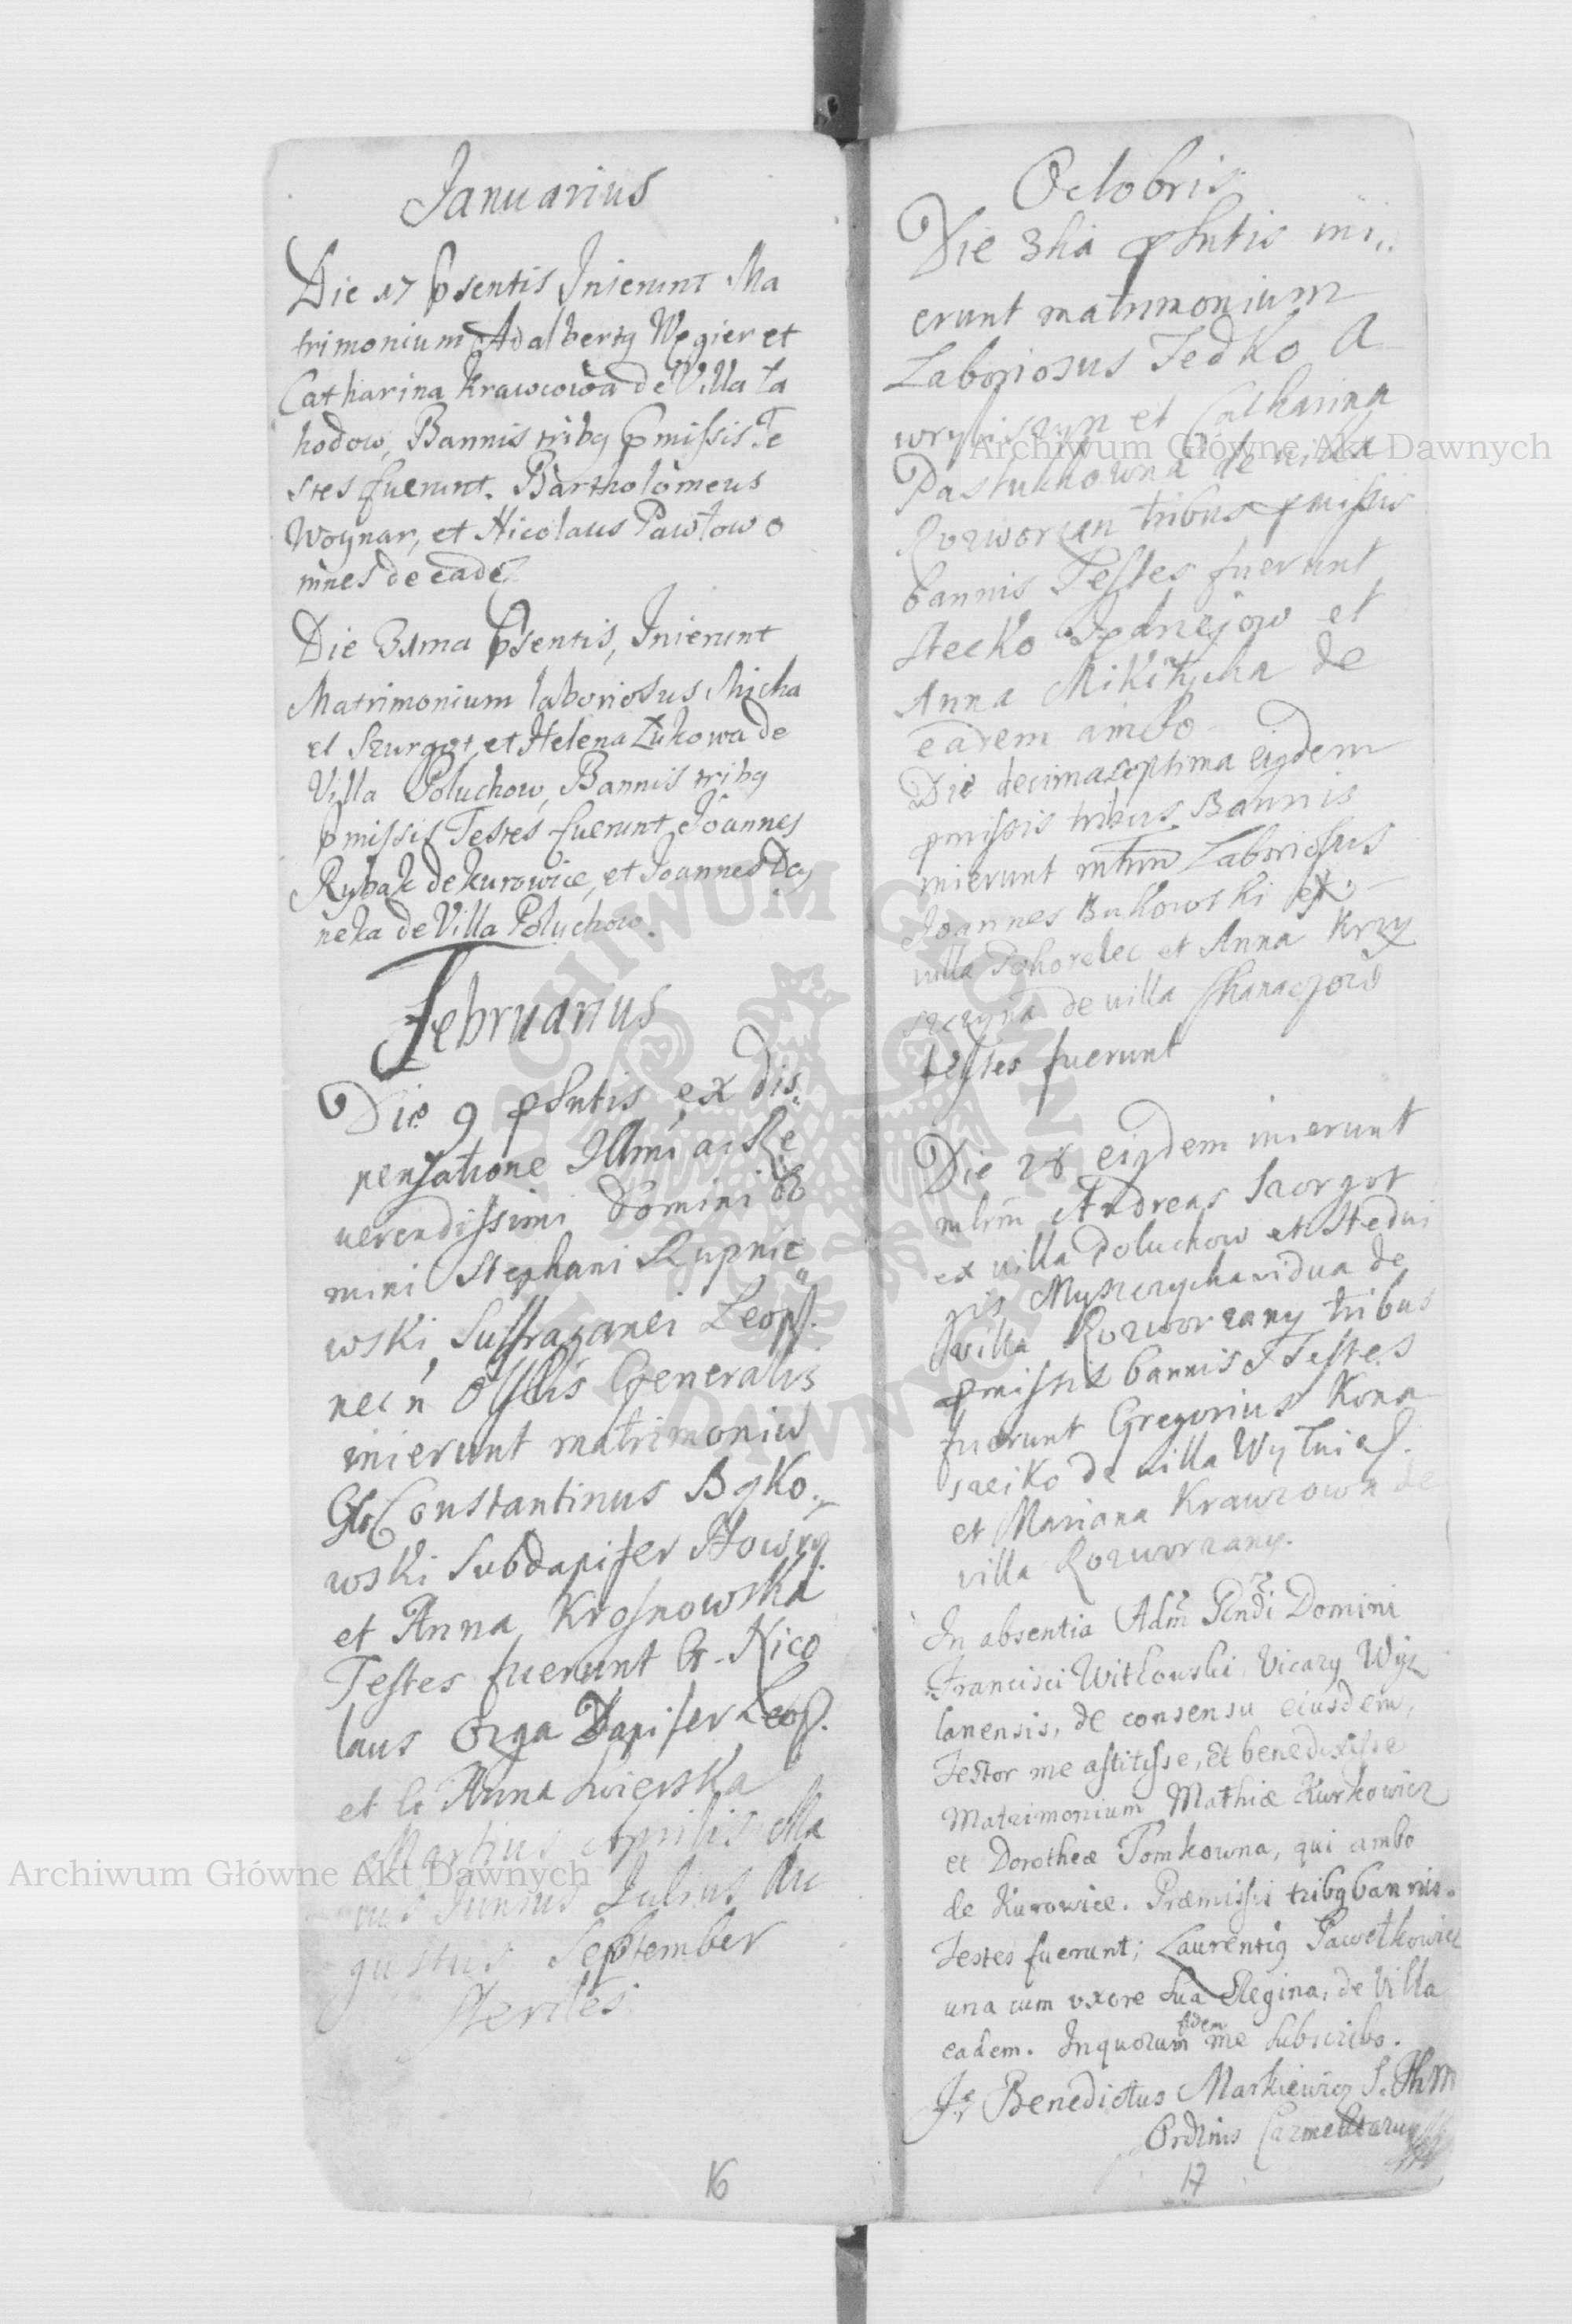 Januarius
Die 17 psentis Inierunt Ma
trimonium Adalbertq Węgier et
Catharina Krawcowa de Villa La
hodow, Bannis tribq pmissis Te
stes fuerunt. Bartholomeus
Woynar, et Nicolaus Pawłow o
mnes de eadē
Die 31ma psentis, Inierunt
Matrimonium laboriosus Micha
el Szurgot, et Helena Żukowa de
Villa Poluchow, Bannis tribq
pmissis Testes fuerunt Joannes
Rybak de Kurowice, et Joannes
neka de Villa Poluchow.
Februarius
Die 9 psntis ex dis„
pensatione Illmi ac Re
verendissimi Domini
mini Stephani Rupnie„
wski Suffraganei Leop.
nec n Offlis Generalis
inierunt matrimoniū
Constantinus Byko„
wski Subdapifer
et Anna Krosnowska
Testes fuerunt G. Nico
laus Ozga Dapifer Leop.
et G Anna
Martius Aprilis Ma
ius Junius Julius Au
gustus September
steriles
16
Octobris
Die 3tia psntis ini„
erunt matrimonium
Laboriosus Fedko
et Catharina
Pastuchowna de villa
tribus pmissis
bannis Testes fuerunt
Stecko et
Anna Mikitycha de
eadem ambo
Die decima septima eiqdem
pmissis tribus Bannis
inierunt mtrm Laboriosus
Joannes Bukowski ex
villa Pohorelec et Anna Krzy
szczyna de villa
testes fuerunt
Die 28 eiqdem inierunt
mtrm Andreas Szorgot
ex villa Poluchow et Hedvi
gis vidua de
villa Rozworzany tribus
pmissis bannis Testes
fuerunt Gregorius Kona
szeiko de villa
et Mariana Krawcowna de
villa Rozworzany.
In absentia Adm Rndi Domini
Francisci Witkowski Vicarq Wyz
lanensis, de consensu eiusdem,
Testor me astitisse, et benedixisse
Matrimonium Mathiæ Kurkowicz
et Dorotheæ Tomkowna, qui ambo
de Kurowice. Præmissis tribq bannis.
Testes fuerunt; Laurentiq Pawełkowicz
una cum uxore sua Regina, de Villa
eadem. In quorum fidem me subscribo.
Fr Benedictus Markiewicz S. Th M
Ordinis Carmelitarum
17
Archiwum Główne Akt Dawnych
Archiwum Główne Akt Dawnych
ARCHIWUM GŁÓWNE AKT DAWNYCH